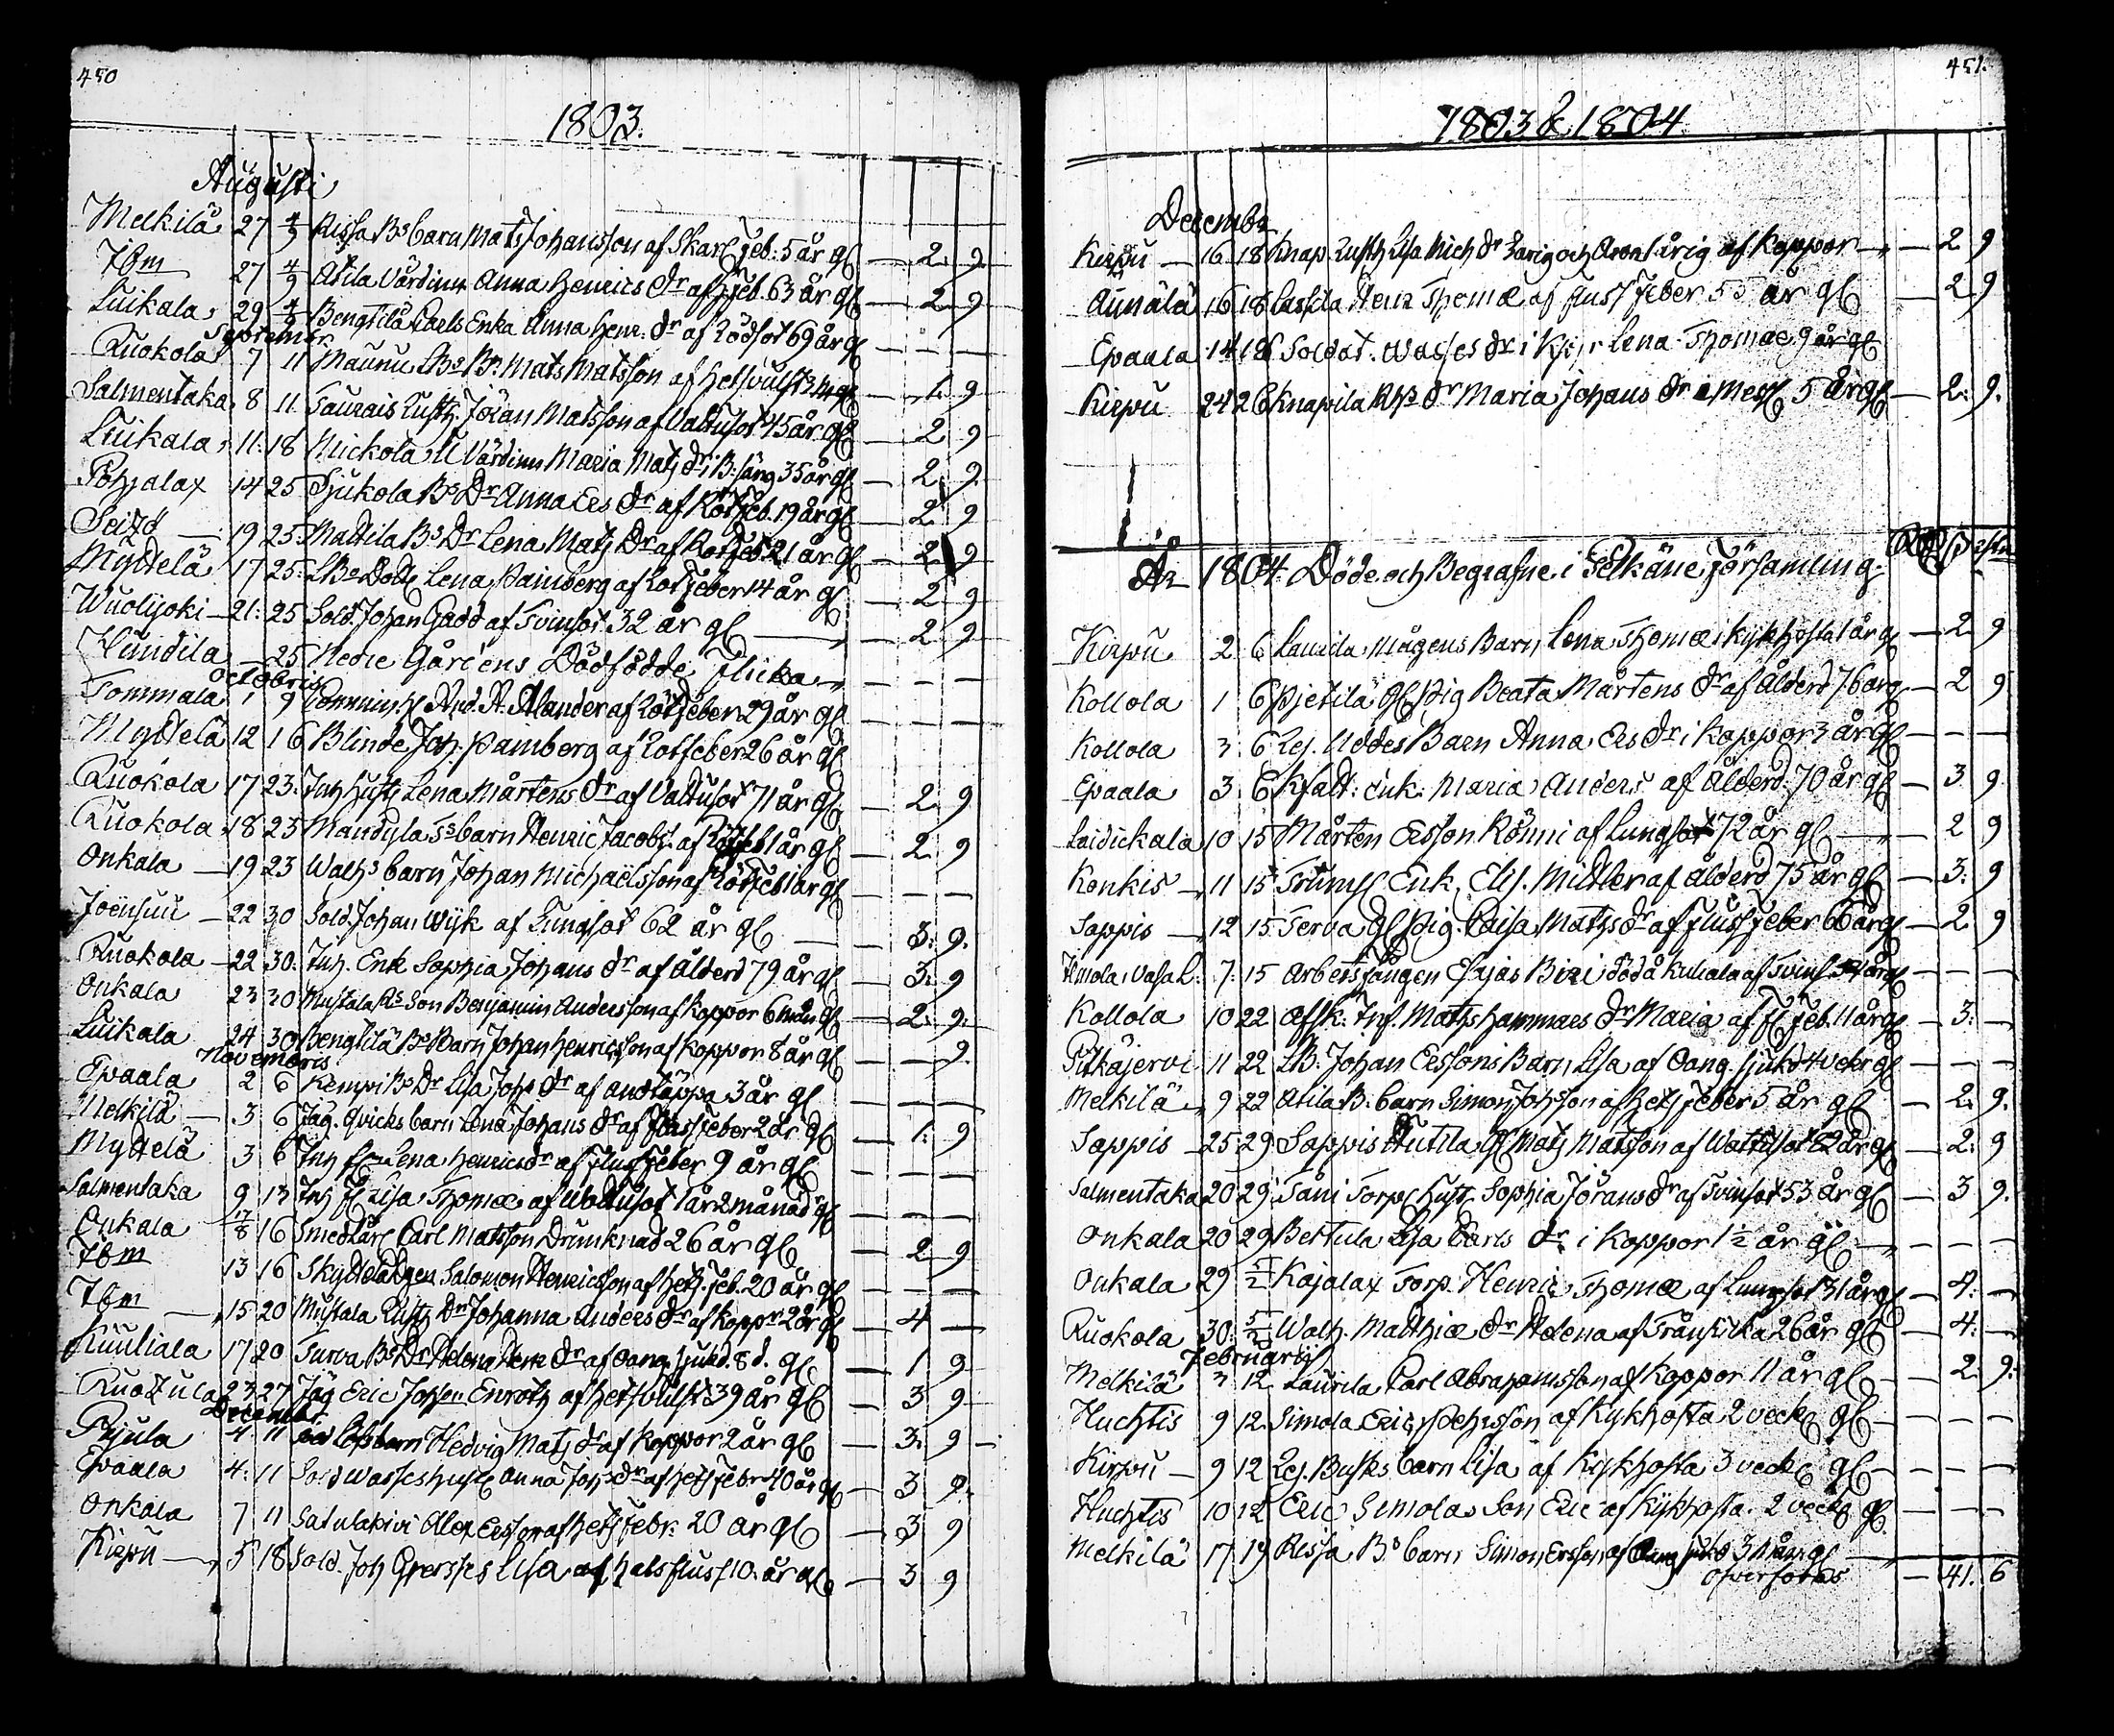 450
1803.
Augusti
Melkilä 27 4/9 Rissa Bs barn Mats Johansson af Skarl Feb: 5 år gl — 2. 9.
Ibm 27 4/9 Atila Värdinn Anna Henrics Dr af Feb. 63 år gl — 2 9
Luikala 29 4/9 Bengtilä Carls Enka Anna Henr. dr af Rödsot 69 år gl — — —
September
Ruokola 7 11 Maunu Bs Mats Matsson af hetsvulst gl — 1. 9
Salmentaka 8 11 Saurais Hustr. Jöran Matsson af Vattusot 45 år gl — 2 9
Luikala 11. 18 Nickola U Värdinn Maria Mats dr i B: säng 35 år gl — 2 9.
Pohjalax 14 25 Sjukola Bs Dr Anna Ers dr af Rötfeb. 19 år gl — 2 9
Seizö — 19 25 Mattila Bs Dr Lena Mats Dr af Rotfeb 21 år gl — 2 9
Myttelä 17 25 Bs Dott Lena Pamberg af Rotfeber 14 år gl — 2 9
Wuolijoki — 21. 25 Sold. Johan Gadd af Tvinsot 32 år gl — 2 9
Hundila — 25 Nedre Gårdens Dödfödde Flicka — — —
Octobris
Tommala 1 9 And. A. Alander af Rötfeber 29 år gl — — —
Myttelä 12 16 Blinde Joh. Pamberg af Rotfeber 26 år gl
Ruokola 17 23. Inh Hustr Lena Mårtens Dr af Vattusot 71 år gl — 2 9
Ruokola 18 23 Mandyla Ss barn Henric Jacobs. af Rötfeb 1 år gl — 2 9
Onkala — 19 23 Walhs barn Johan Michaëlsson af Rötfeb 1 år gl — — —
Joensuu — 22 30 Sold. Johan Wijk af Lungsot 62 år gl — 3. 9.
Ruokola — 22 30. Inh. Enk Sophia Johans dr af Ålderd 79 år gl — 3. 9
Onkala 23 30 Mustala Rs Son Benjamin Andersson af Koppor 6 mån gl — 2. 9.
Luikala 24 30 Bengtilä Bs Barn Johan Henricsson af Koppor 8 år gl — — 9.
Novembris
Epaala 2 6 Kempi Bs Dr Lisa Johs dr af andtäppa 3 år gl — — —
Melkilä — 3 6 Jäg. Qvicks barn Lena Johans dr af Flussfeber 2 år gl — 1. 9
Myttelä 3 6 Inh Lena Henricsdr af Flussfeber 9 år gl — — —
Salmentaka 9 13 Inh fl Lisa Thomæ af Vattusot 1 år 2 månadr gl — — —
Onkala 17/8 16 Smedlärl Carl Matsson Drunknad 26 år gl — 2 9
Ibm 13 16 Skyttdrängen Salomon Henricsson af hets. feb. 20 år gl — — —
Ibm — 15 20 Mustala Hustr Dr Johanna Anders dr af Koppr 2 år gl — 4 —
Kuuliala 17 20 Turva Bs Dr Helena Henr dr af oang. sjukd. 8 d. gl — 1 9
Ruotula 23 27 Jäg Eric Johsson Enroth af hetsvulst 39 år gl — 3 9
December
Pejula 4 11 barn Hedvig Mats dr af Koppor 2 år gl — 3. 9 —
Epaala 4. 11 Sold Wasses hustr Anna Johs dr af hets febr 40 år gl — 3 9.
Onkala 7 11 Satulakivi Alex Ersson af hets febr. 20 år gl — 3 9
Kirpu — 5 18 Sold. Joh Lisa af halsfluss 10. år gl — 3 9
451.
1803 & 1804
December
Kirpu — 16 18 Knap. Hustr Lisa Mich dr 3 årig och Aron 1 årig af Koppor — 2 9
Aunälä 16 18 Lassila Henr Thomæ af flussfeber 55 år gl — 2 9
Epaala 14 18 Soldat. Wasses dr i Kh: Lena Thomæ 9 år gl
Kirpu 24 26 Knapila Rhs dr Maria Johans dr i Messl 5 år gl — 2. 9.
År 1804. Döde och Begrafne i Pelkäne Församling
Kirpu 2 6 Laurila Mågens Barn Lena Thomæ i Kykhosta 1 år gl — 2 9
Kollola 1 6 Pjetilä Gl Pig Beata Mårtens dr af Ålderd 76 år gl — 2 9
Kollola 3 6 Rej. Uddes Barn Anna Ers dr i Koppor 3 år gl — — —
Epaala 3. 6 Kfadt: enk. Maria Anders af Ålderd. 70 år gl — 3 9
Laidickala 10 15 Mårten Ersson Rönni af Lungsot 72 år gl — 2 9
Konkis 11 15 Trumsl Enk. Elis. Mittler af Ålderd 75 år gl — 3. 9
Sappis — 12 15 Terva Gl Pig. Caisa Mats dr af Flussfeber 66 år gl — 2 9
7. 15 Arbetsfången Esajas Biri död å Kuliala af Tvins. år gl — — —
Kollola 10 22 Afsk. Inf. Mats Hammars dr Maria af Fl Feb. 11 år gl — 3. —
Pitkäjervi 11 22 LB. Johan Ersons Barn Lisa af Oang. sjukd 4 vekr gl — — —
Melkilä 9 22 Atila B. barn Simon Johsson af Hets feber 5 år gl — 2. 9.
Sappis — 25 29 Sappis Hutila Gl Mats Matsson af Wattusot 82 år gl — 2. 9
Salmentaka 20 29 Tani Torps Hustr Sophia Jörans dr af Tvinsot 53 år gl — 3 9.
Onkala 20 29 Bertula Lisa Carls dr i Koppor 1 1/2 år gl — — —
Onkala 29 5/2 Kajalax Torp. Henric Thomæ af Lungsot 31 år gl — 4. —
Ruokola 30. 5/2 Walh. Matthiæ dr Helena af Trånsjuka 26 år gl — 4. —
Februarij
Melkilä 3 12 Laurila Carl Abrahamsson af Koppor 11 år gl — 2. 9.
Huchtis 9 12 Simola Eric Pehrsson af Kykhosta 2 veck gl — — —
Kirpu — 9 12 Rej. Busks barn Lisa af Kykhosta 3 veck gl — — —
Huchtis 10 12 Eric Simolas Son Eric af Kykhosta. 2 veck gl — — —
Melkilä 17 19 Rissa Bs barn Simon Ersson af Oang sjukd 3 mån gl
Öfverföres — 41. 6